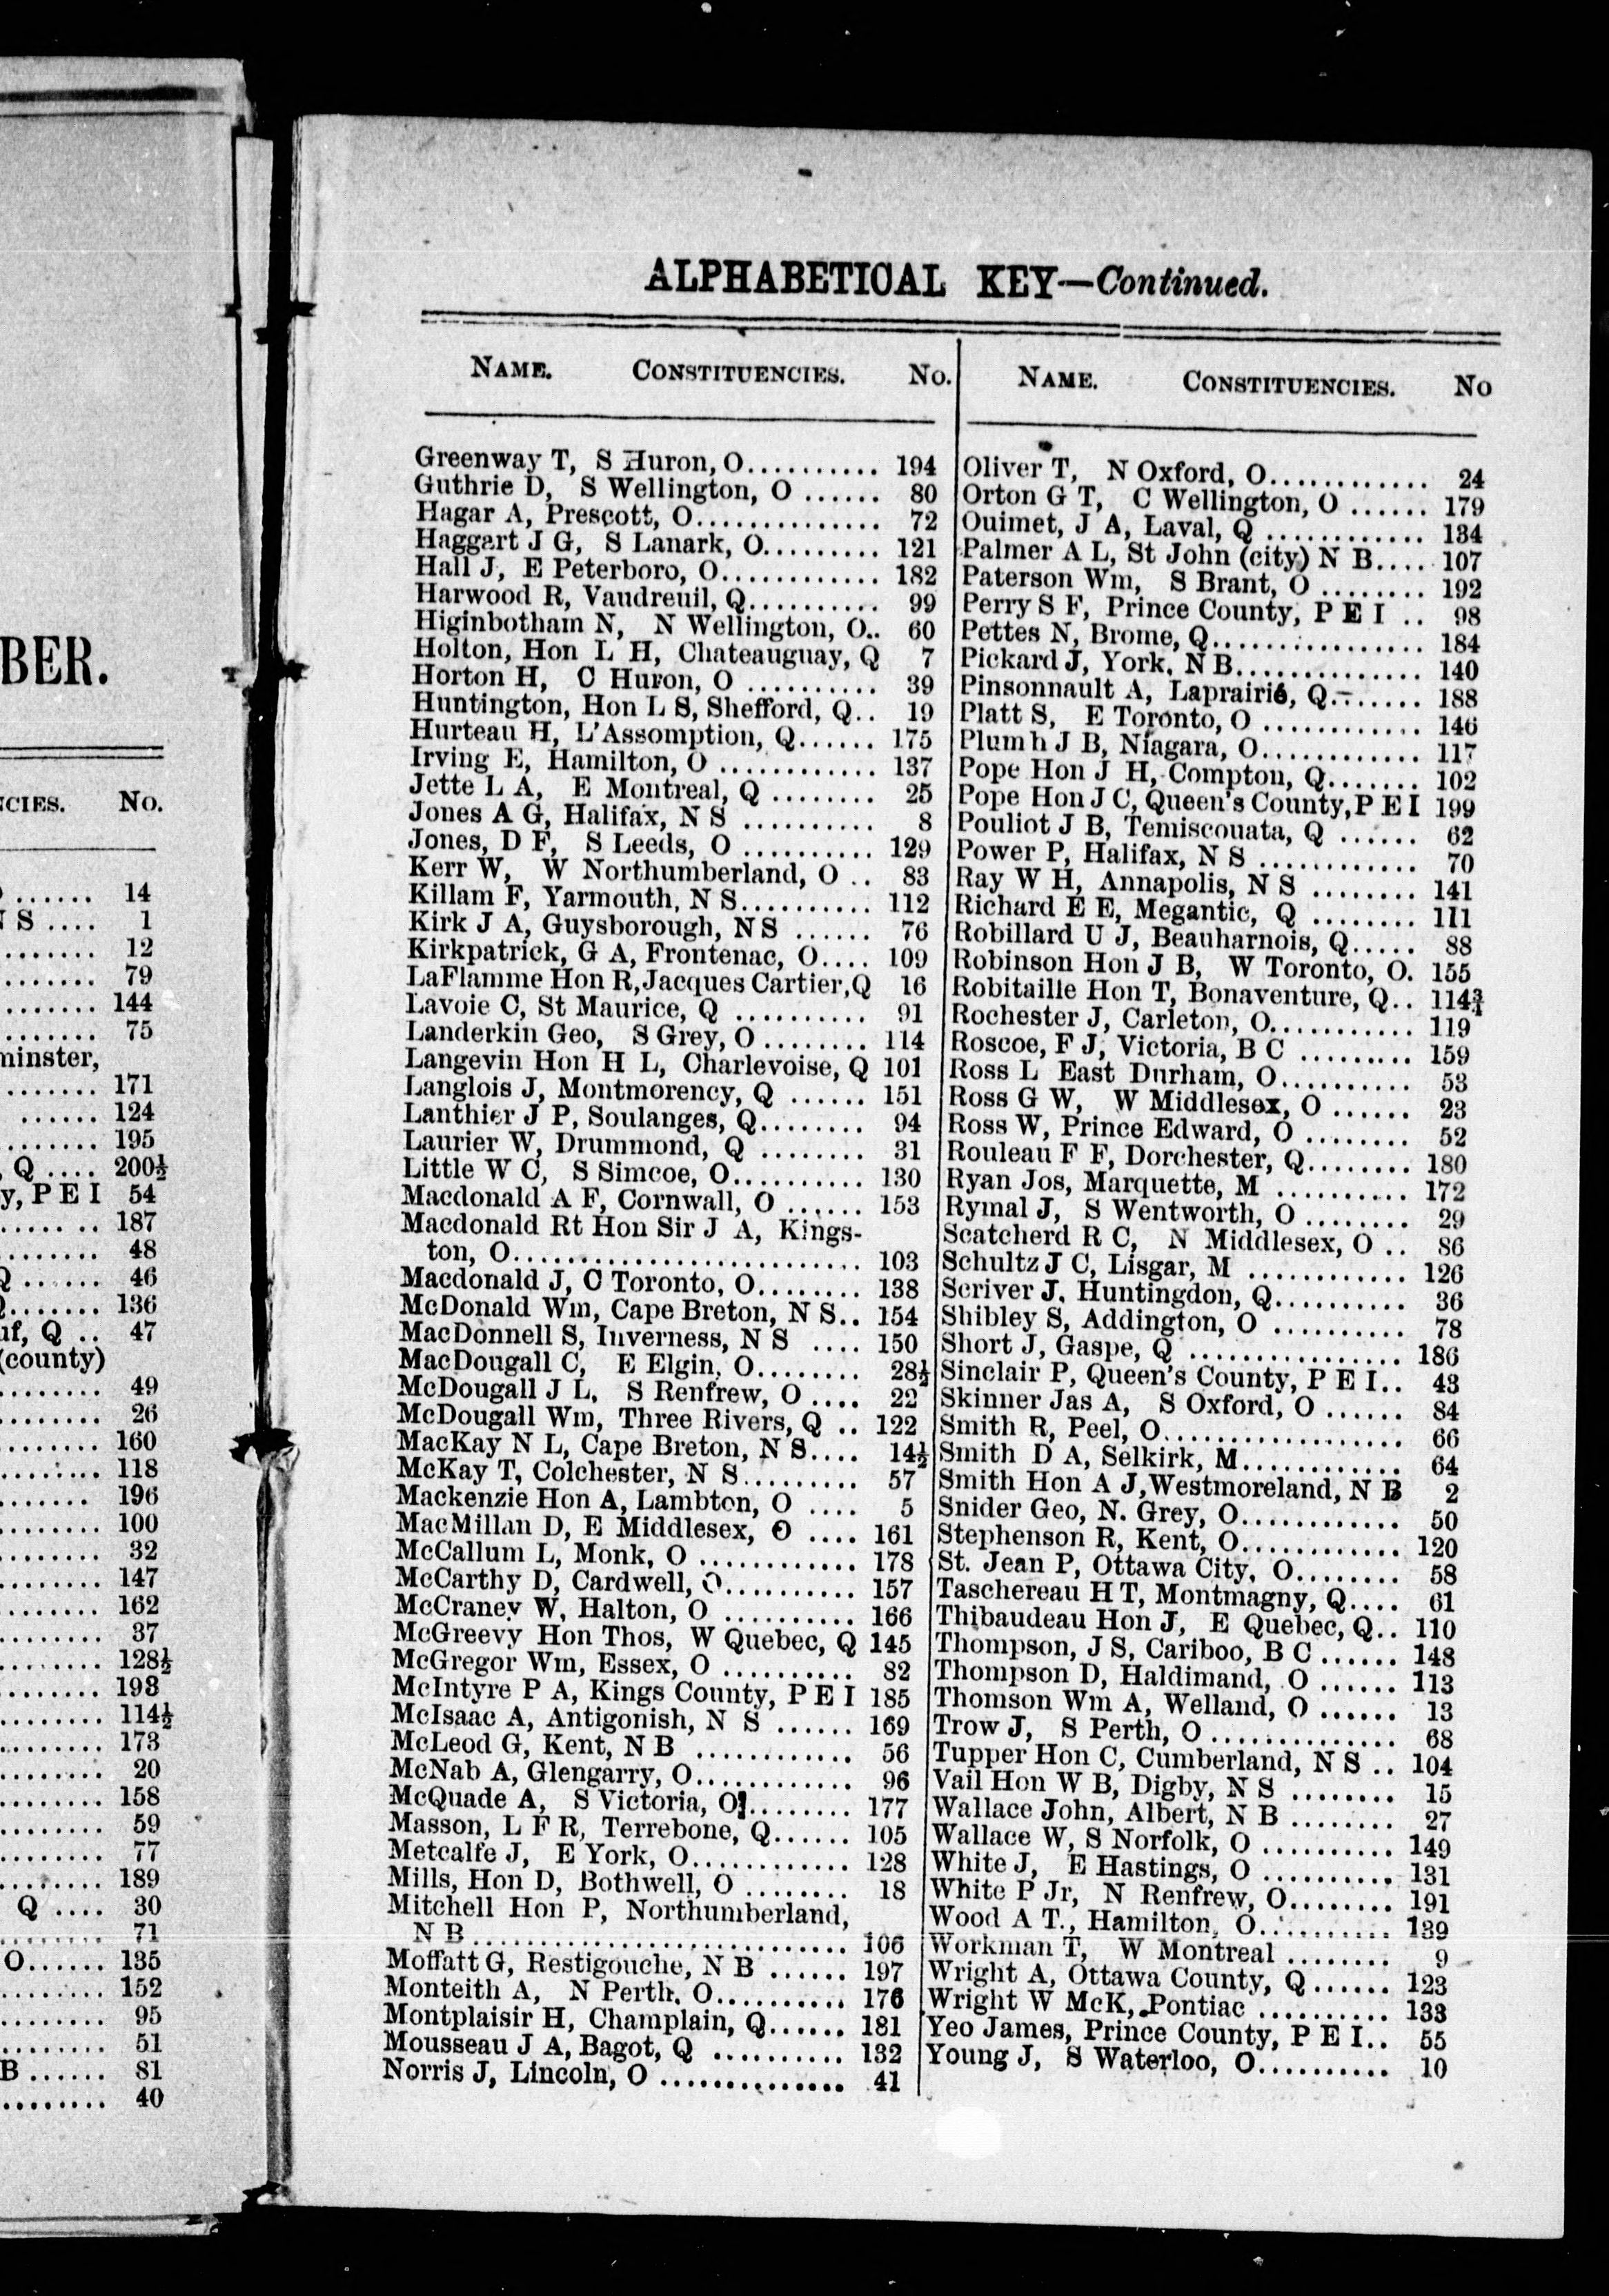 BER.
CIES. No.
...... 14
N S .... 1
........ 12
........ 79
........ 144
........ 75
minster,
........ 171
...... 124
........ 195
, Q .... 200½
y, P E I 54
........ 187
........ 48
Q ...... 46
........ 136
uf, Q .. 47
(county)
........ 49
........ 26
........ 160
........ 118
........ 196
........ 100
........ 32
........ 147
........ 162
........ 37
........ 128½
........ 193
........ 114½
........ 173
........ 20
........ 158
........ 59
........ 77
........ 189
Q .... 30
........ 71
O...... 135
........ 152
........ 95
........ 51
B ...... 81
........ 40
ALPHABETICAL KEY—Continued.
NAME. CONSTITUENCIES. No.
Greenway T, S Huron, O.......... 194
Guthrie D, S Wellington, O ...... 80
Hagar A, Prescott, O.............. 72
Haggart J G, S Lanark, O......... 121
Hall J, E Peterboro, O............ 182
Harwood R, Vaudreuil, Q.......... 99
Higinbotham N, N Wellington, O.. 60
Holton, Hon L H, Chateauguay, Q 7
Horton H, C Huron, O .......... 39
Huntington, Hon L S, Shefford, Q.. 19
Hurteau H, L'Assomption, Q...... 175
Irving E, Hamilton, O ............ 137
Jette L A, E Montreal, Q ........ 25
Jones A G, Halifax, N S .......... 8
Jones, D F, S Leeds, O .......... 129
Kerr W, W Northumberland, O .. 83
Killam F, Yarmouth, N S.......... 112
Kirk J A, Guysborough, N S ...... 76
Kirkpatrick, G A, Frontenac, O.... 109
LaFlamme Hon R, Jacques Cartier, Q 16
Lavoie C, St Maurice, Q .......... 91
Landerkin Geo, S Grey, O ........ 114
Langevin Hon H L, Charlevoise, Q 101
Langlois J, Montmorency, Q ...... 151
Lanthier J P, Soulanges, Q........ 94
Laurier W, Drummond, Q ........ 31
Little W C, S Simcoe, O.......... 130
Macdonald A F, Cornwall, O ...... 153
Macdonald Rt Hon Sir J A, Kings-
ton, O.............................. 103
Macdonald J, C Toronto, O........ 138
McDonald Wm, Cape Breton, N S.. 154
MacDonnell S, Inverness, N S .... 150
MacDougall C, E Elgin, O........ 28½
McDougall J L, S Renfrew, O .... 22
McDougall Wm, Three Rivers, Q .. 122
MacKay N L, Cape Breton, N S.... 14½
McKay T, Colchester, N S......... 57
Mackenzie Hon A, Lambton, O .... 5
MacMillan D, E Middlesex, O .... 161
McCallum L, Monk, O ............ 178
McCarthy D, Cardwell, O.......... 157
McCraney W, Halton, O .......... 166
McGreevy Hon Thos, W Quebec, Q 145
McGregor Wm, Essex, O .......... 82
McIntyre P A, Kings County, P E I 185
McIsaac A, Antigonish, N S ...... 169
McLeod G, Kent, N B ............ 56
McNab A, Glengarry, O............ 96
McQuade A, S Victoria, O......... 177
Masson, L F R, Terrebone, Q...... 105
Metcalfe J, E York, O............ 128
Mills, Hon D, Bothwell, O ........ 18
Mitchell Hon P, Northumberland,
N B.............................. 106
Moffatt G, Restigouche, N B ...... 197
Monteith A, N Perth, O........... 176
Montplaisir H, Champlain, Q...... 181
Mousseau J A, Bagot, Q .......... 132
Norris J, Lincoln, O .............. 41
NAME. CONSTITUENCIES. No
Oliver T, N Oxford, O............ 24
Orton G T, C Wellington, O ...... 179
Ouimet, J A, Laval, Q ............ 134
Palmer A L, St John (city) N B.... 107
Paterson Wm, S Brant, O ........ 192
Perry S F, Prince County, P E I .. 98
Pettes N, Brome, Q................ 184
Pickard J, York, N B.............. 140
Pinsonnault A, Laprairie, Q....... 188
Platt S, E Toronto, O ............ 146
Plumb J B, Niagara, O............ 117
Pope Hon J H, Compton, Q....... 102
Pope Hon J C, Queen's County, P E I 199
Pouliot J B, Temiscouata, Q ...... 62
Power P, Halifax, N S ............ 70
Ray W H, Annapolis, N S ........ 141
Richard E E, Megantic, Q ........ 111
Robillard U J, Beauharnois, Q..... 88
Robinson Hon J B, W Toronto, O. 155
Robitaille Hon T, Bonaventure, Q.. 114¾
Rochester J, Carleton, O........... 119
Roscoe, F J, Victoria, B C ......... 159
Ross L East Durham, O........... 53
Ross G W, W Middlesex, O ...... 23
Ross W, Prince Edward, O ........ 52
Rouleau F F, Dorchester, Q........ 180
Ryan Jos, Marquette, M .......... 172
Rymal J, S Wentworth, O ........ 29
Scatcherd R C, N Middlesex, O .. 86
Schultz J C, Lisgar, M ............ 126
Scriver J, Huntingdon, Q.......... 36
Shibley S, Addington, O .......... 78
Short J, Gaspe, Q ................ 186
Sinclair P, Queen's County, P E I.. 43
Skinner Jas A, S Oxford, O ...... 84
Smith R, Peel, O.................. 66
Smith D A, Selkirk, M............ 64
Smith Hon A J, Westmoreland, N B 2
Snider Geo, N. Grey, O............ 50
Stephenson R, Kent, O............ 120
St. Jean P, Ottawa City, O........ 58
Taschereau H T, Montmagny, Q.... 61
Thibaudeau Hon J, E Quebec, Q.. 110
Thompson, J S, Cariboo, B C ...... 148
Thompson D, Haldimand, O ...... 113
Thomson Wm A, Welland, O ...... 13
Trow J, S Perth, O .............. 68
Tupper Hon C, Cumberland, N S .. 104
Vail Hon W B, Digby, N S ........ 15
Wallace John, Albert, N B ........ 27
Wallace W, S Norfolk, O .......... 149
White J, E Hastings, O .......... 131
White P Jr, N Renfrew, O........ 191
Wood A T., Hamilton, O.......... 139
Workman T, W Montreal ........ 9
Wright A, Ottawa County, Q...... 123
Wright W McK, Pontiac .......... 133
Yeo James, Prince County, P E I.. 55
Young J, S Waterloo, O.......... 10